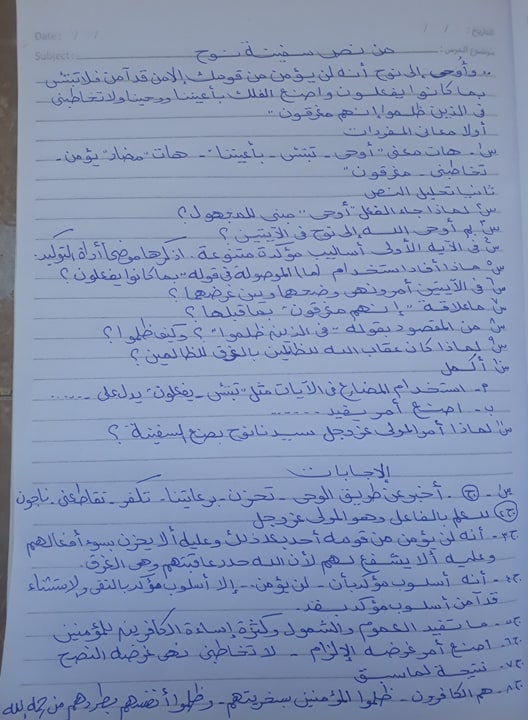 التاريخ: / / Date: / /
موضوع الدرس: Subject:
من نص سفينة نوح
"وأُوحى إلى نوح أنه لن يؤمن من قومك إلا من قد آمن فلا تبتئس
بما كانوا يفعلون واصنع الفلك بأعيننا ووحينا ولا تخاطبنى
فى الذين ظلموا إنهم مغرقون"
أولا معانى المفردات
س١- هات معنى "أوحى - تبتئس - بأعيننا" - هات "مضاد" يؤمن -
تخاطبنى - مغرقون"
ثانيا تحليل النص
س٢ لماذا جاء الفعل "أوحى" مبنى للمجهول؟
س٣ بم أوحى الله إلى نوح فى الآيتين؟
س٤ فى الآية الأولى أساليب مؤكدة متنوعة. اذكرها موضحا أداة التوكيد.
س٥ ماذا أفاد استخدام (ما) الموصولة فى قوله "بما كانوا يفعلون"؟
س٦ فى الآيتين أمر ونهى وضحها وبين غرضها؟
س٧ ما علاقة "إنهم مغرقون" بما قبلها؟
س٨ من المقصود بقوله "فى الذين ظلموا"؟ وكيف ظلموا؟
س٩ لماذا كان عقاب الله للظالمين بالغرق للظالمين؟
س١٠ أكمل
م- استخدام المضارع فى الآيات مثل "تبتئس - يفعلون" يدل على ......
ب- اصنع أمر يفيد ........
س١١ لماذا أمر المولى عز وجل سيدنا نوح بصنع السفينة؟
الإجابات
س١- ج١. أخبر عن طريق الوحى - تحزن - برعايتنا - تكفر - تقاطعنى - ناجون
ج٢ للعلم بالفاعل وهو المولى عز وجل
ج٣- أنه لن يؤمن من قومه أحد بعد ذلك وعليه ألا يحزن سوء أفعالهم
وعليه ألا يشفع لهم لأن الله حدد عاقبتهم وهى الغرق.
ج٤- أنه أسلوب مؤكد بأن - لن يؤمن - إلا أسلوب مؤكد بالنفى والإستثناء
قد آمن أسلوب مؤكد بقد.
ج٥- ما تفيد العموم والشمول وكثرة إساءة الكافرين للمؤمنين
ج٦- اصنع أمر غرضه الإلزام - لا تخاطبنى نهى غرضه النصح
ج٧- نتيجة لما سبق
ج٨- هم الكافرون - ظلموا المؤمنين بسخريتهم - وظلموا أنفسهم بطردهم من رحمة الله